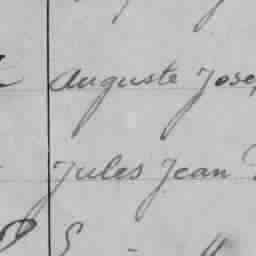 Auguste Jose
Jules Jean